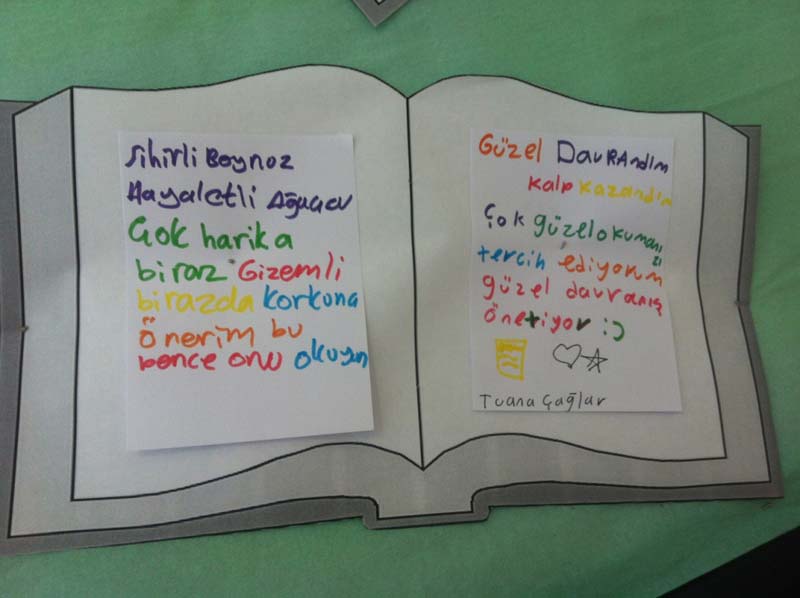 Sihirli Boynoz
Hayaletli Ağacav
Çok harika
biraz Gizemli
birazda korkunç
Önerim bu
bence onu okuyun
Güzel DavRAndım
kalp kazandım
Çok güzel okumanı
zı
tercih ediyorum
güzel davranış
önetiyor :)
Tuana Çağlar